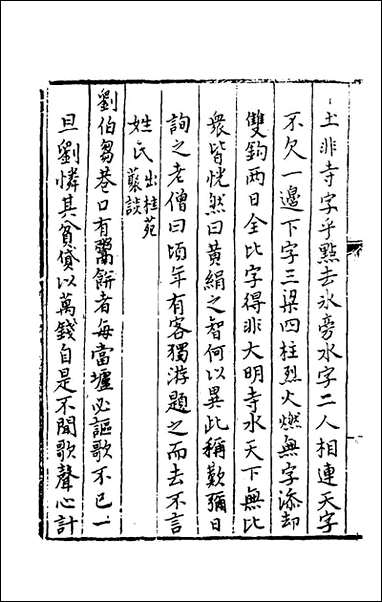 土非寺字乎點去氷旁水字二人相連天字
不欠一邊下字三梁四柱烈火燃無字添却
雙鈎兩日全比字得非大明寺水天下無比
衆皆恍然曰黄絹之智何以異此稱歎彌日
詢之老僧曰頃年有客獨游題之而去不言
姓氏出桂苑叢談
劉伯芻巷口有鬻餅者每當壚必謳歌不已一
旦劉憐其貧貸以萬錢自是不聞歌聲心計